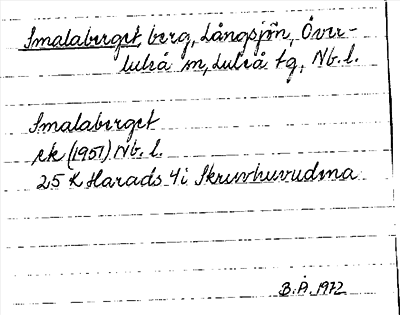 Smalaberget, berg, Långsjön, Över-
luleå sn, Luleå tg, Nb. l.
Smalaberget
ek (1951) Nb. l.
25 K Harads 4i Skruvhuvudena
B. Å. 1972